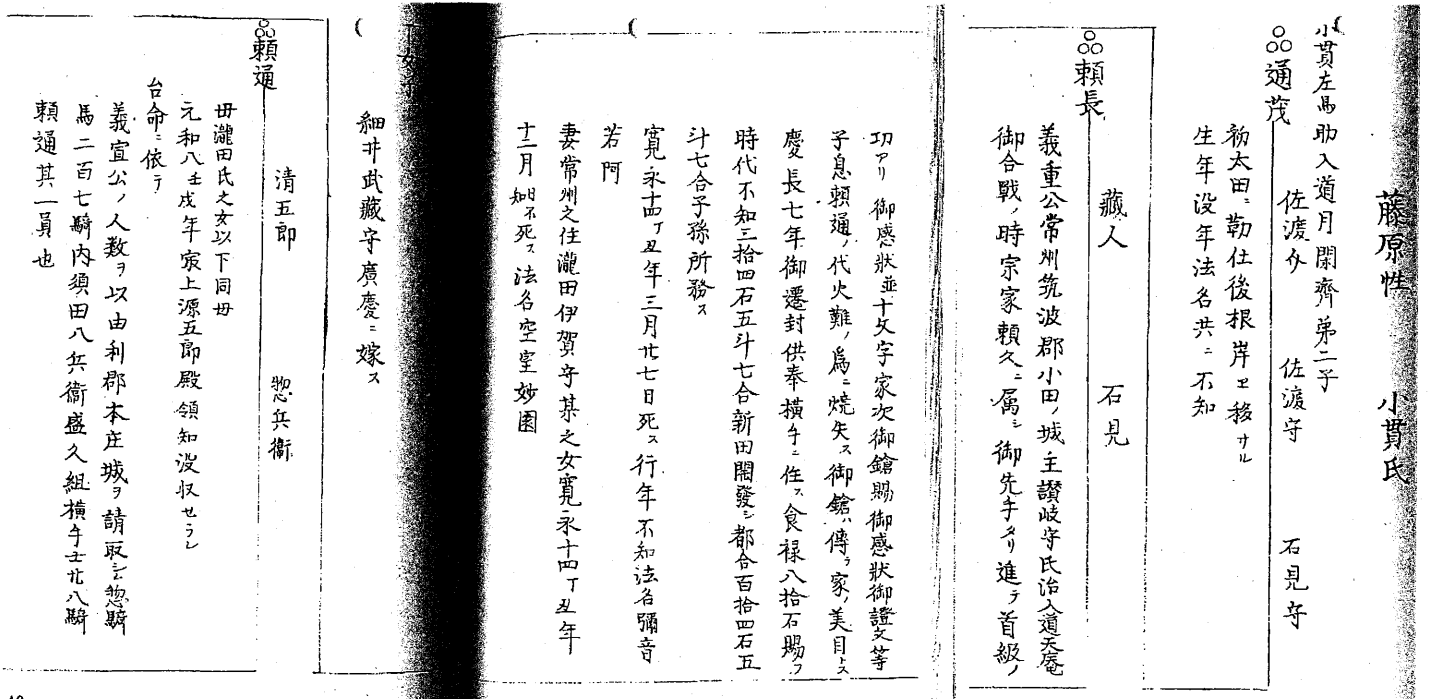 藤原性 小貫氏
小貫左馬助入道月閑齊第二子
通茂 佐渡介 佐渡守 石見守
初太田ニ勤仕後根岸ヱ移サル
生年没年法名共ニ不知
頼長 藏人 石見
義重公常州筑波郡小田ノ城主讃岐守氏治入道天庵
御合戦ノ時宗家頼久ニ属シ御先手タリ進テ首級ノ
功アリ 御感状並十文字家次御鎗賜御感状御證文等
子息頼通ノ代火難ノ爲ニ焼失ス御鎗ハ傳ヲ家ノ美目トス
慶長七年御遷封供奉横手ニ住ス食禄八拾石賜フ
時代不知三拾四石五斗七合新田開發シ都合百拾四石五
斗七合子孫所務ス
寛永十四丁丑年三月廿七日死ス行年不知法名彌音
若阿
妻常州之住瀧田伊賀守某之女寛永十四丁丑年
十二月 日不知死ス 法名空室妙園
女子
細井武藏守廣慶ニ嫁ス
頼通 清五郎 惣兵衞
毋瀧田氏之女以下同毋
元和八壬戌年㝡上源五郎殿領知没収セラレ
台命ニ依テ
義宣公ノ人数ヲ以由利郡本庄城ヲ請取シ惣騎
馬二百七騎内須田八兵衞盛久組横手士廿八騎
頼通其一員也